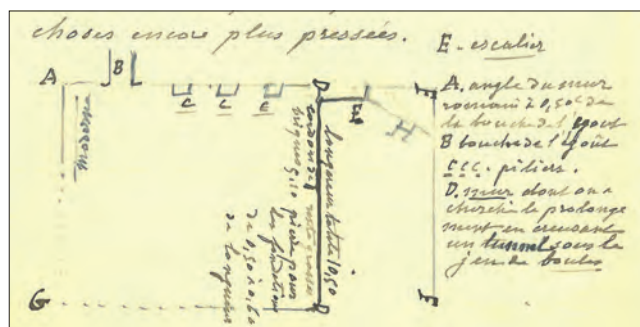 choses encore plus pressées.
E - escalier
A B C C E D E F
H
moderne
longueur totale 10,50
cordon de
briques
pierre pour
les fondations
de 0,50 à 0,60
de longueur
G D F
A. angle du mur
romain à 0,50c de
la bouche de l'égout
B bouche de l'égoût
C C C. piliers.
D. mur dont on a
cherché le prolonge
ment en creusant
un tunnel sous le
jeu de boules